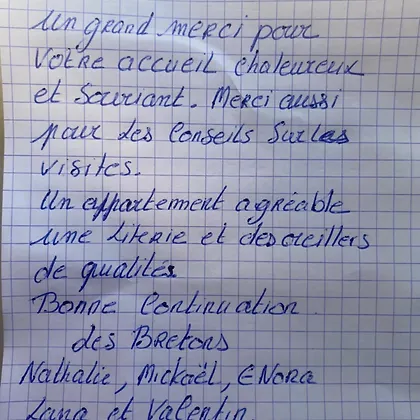 Un grand merci pour
votre accueil chaleureux
et souriant. Merci aussi
pour les conseils sur les
visites.
Un appartement agréable
une literie et des oreillers
de qualités
Bonne continuation.
des Bretons
Nathalie, Mickaël, ENORA
Lana et Valentin